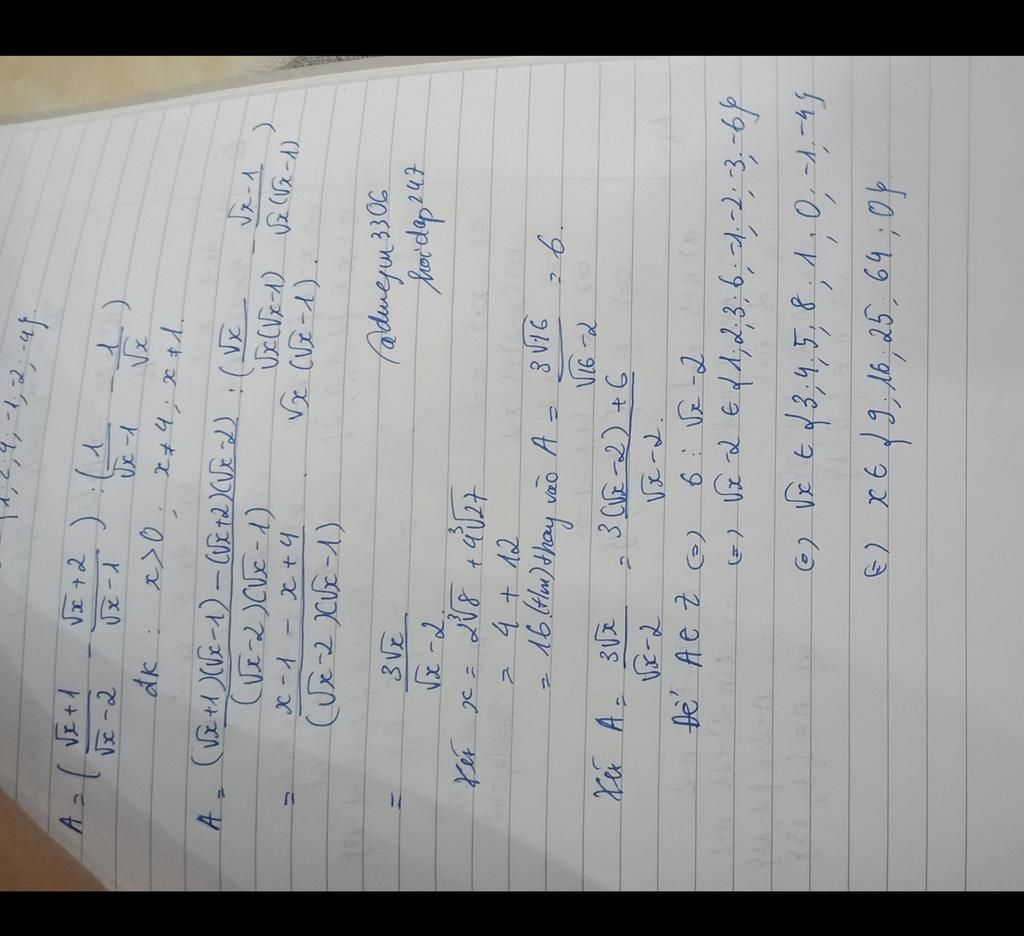 {1; 2; 4; -1; -2; -4}
A = ( (√x+1)/(√x-2) - (√x+2)/(√x-1) ) : ( 1/(√x-1) - 1/√x )
đk: x>0; x≠4; x≠1.
A = ((√x+1)(√x-1) - (√x+2)(√x-2))/((√x-2)(√x-1)) : ( √x/(√x(√x-1)) - (√x-1)/(√x(√x-1)) )
= (x-1-x+4)/((√x-2)(√x-1)) . √x(√x-1).
= 3√x/(√x-2)
@duuejın3306
hoidap247
Xét x = 2∛8 + 4∛27
= 4 + 12
= 16 (t/m) thay vào A = 3√16/(√16-2) = 6.
Xét A = 3√x/(√x-2) = (3(√x-2)+6)/(√x-2).
Để A∈Z (=) 6 ⋮ √x-2
(=) √x-2 ∈ {1; 2; 3; 6; -1; -2; -3; -6}
(=) √x ∈ {3; 4; 5; 8; 1; 0; -1; -4}
(=) x ∈ {9; 16; 25; 64; 0}.